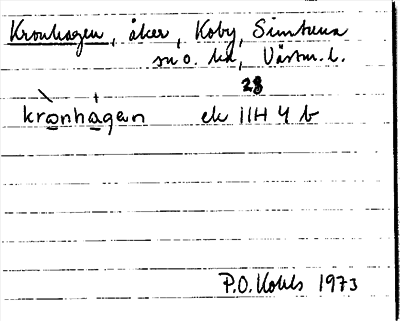 Kronhagen, åker, Koby, Simtuna
sn o. hd, Västm. l.
28
kronhagen ek 11H 4 b
P.O. Kohls 1973